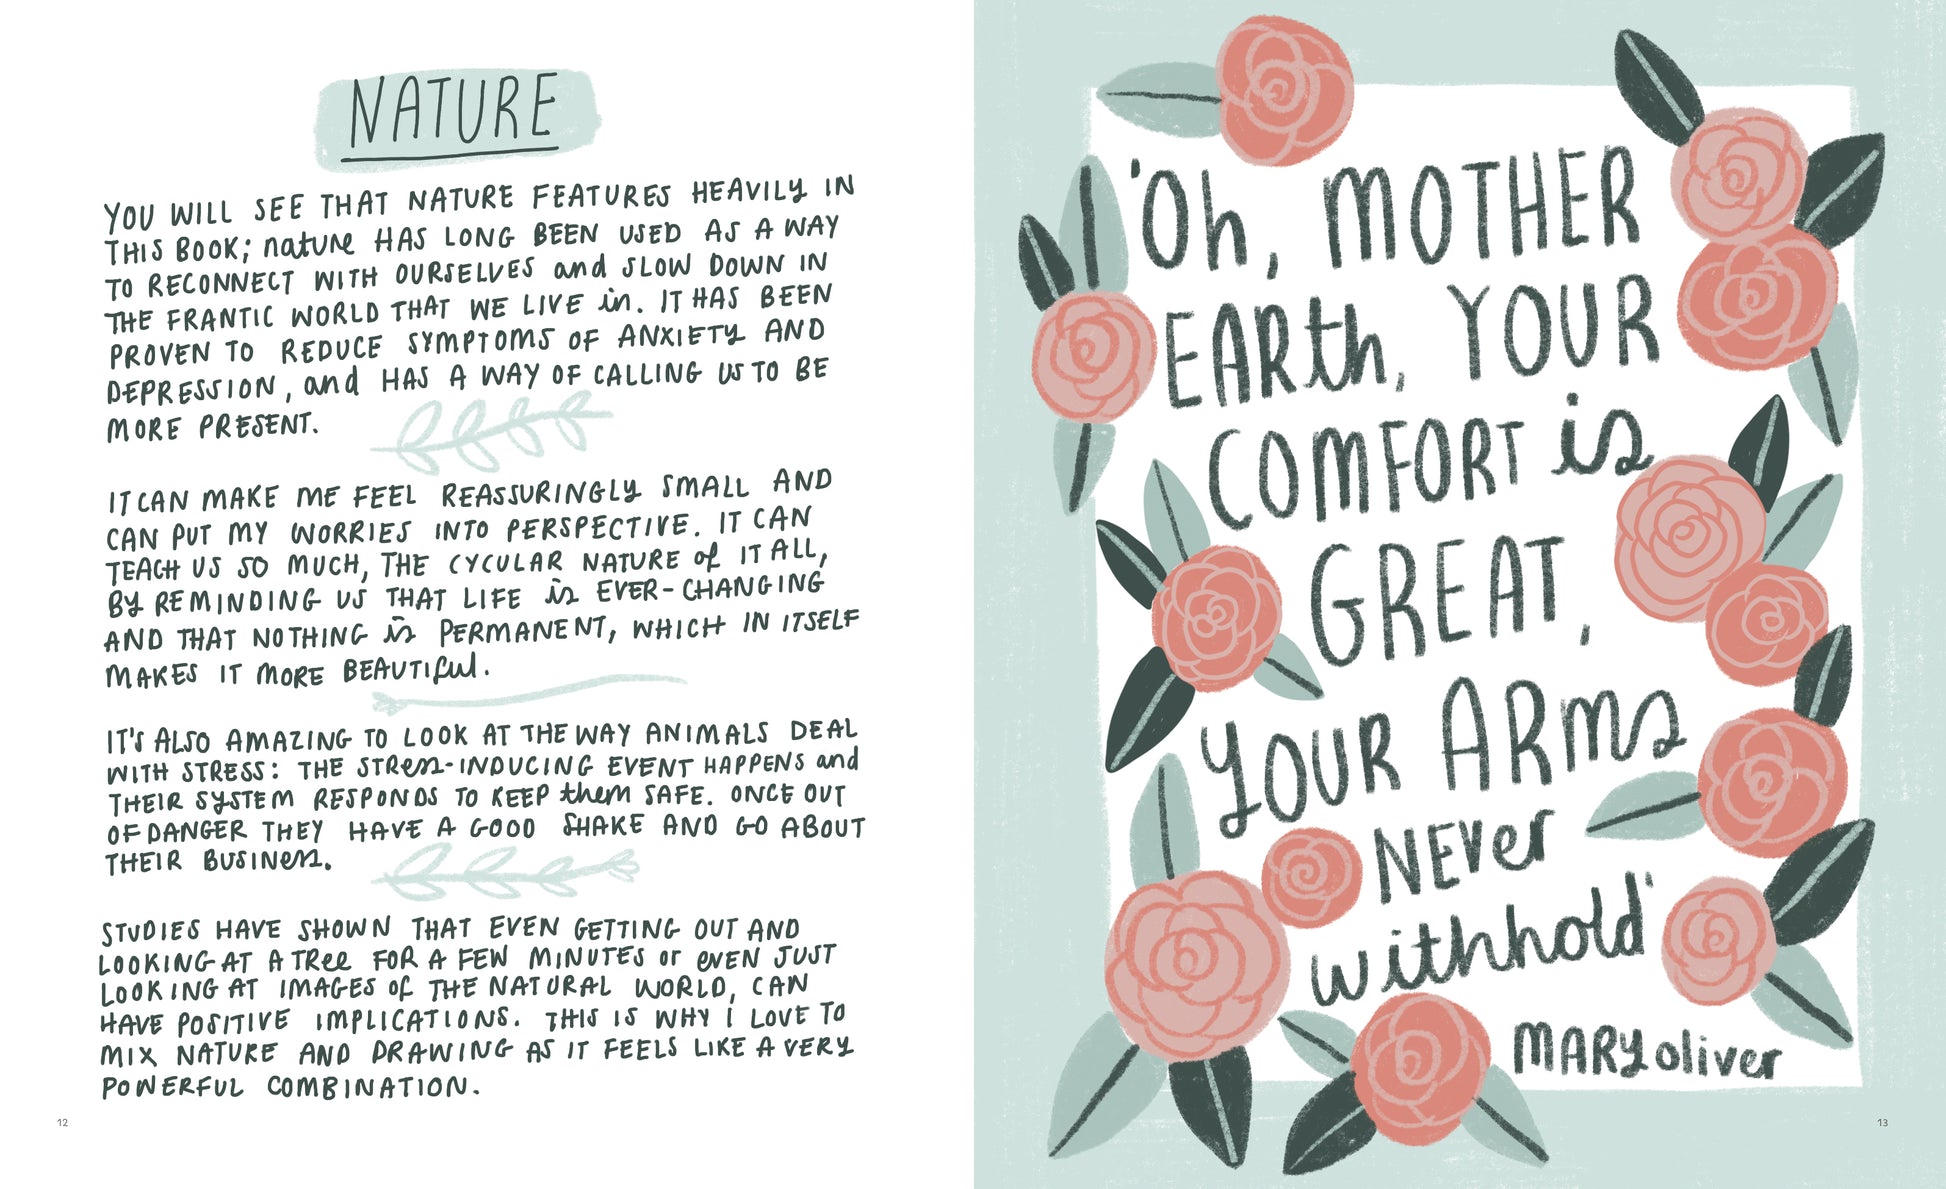 NATURE
YOU WILL SEE THAT NATURE FEATURES HEAVILY IN
THIS BOOK; nature HAS LONG BEEN USED AS A WAY
TO RECONNECT WITH OURSELVES and SLOW DOWN IN
THE FRANTIC WORLD THAT WE LIVE in. IT HAS BEEN
PROVEN TO REDUCE SYMPTOMS OF ANXIETY AND
DEPRESSION, and HAS A WAY OF CALLING US TO BE
MORE PRESENT.
IT CAN MAKE ME FEEL REASSURINGLY SMALL AND
CAN PUT MY WORRIES INTO PERSPECTIVE. IT CAN
TEACH US SO MUCH, THE CYCULAR NATURE of IT ALL,
BY REMINDING US THAT LIFE is EVER-CHANGING
AND THAT NOTHING is PERMANENT, WHICH IN ITSELF
MAKES IT MORE BEAUTIful.
IT'S ALSO AMAZING TO LOOK AT THE WAY ANIMALS DEAL
WITH STRESS: THE STRess-INDUCING EVENT HAPPENS and
THEIR SYSTEM RESPONDS TO KEEP them SAFE. ONCE OUT
OF DANGER THEY HAVE A GOOD SHAKE AND GO ABOUT
THEIR BUSINess.
STUDIES HAVE SHOWN THAT EVEN GETTING OUT AND
LOOKING AT A TRee FOR A FEW MINUTES or eVEN JUST
LOOKING AT IMAGES of THE NATURAL WORLD, CAN
HAVE POSITIVE IMPLICATIONS. THIS IS WHY i LOVE TO
MIX NATURE AND DRAWING AS IT FEELS LIKE A VERY
POWERFUL COMBINATION.
12
'Oh, MOTHER
EARth, YOUR
COMFORT is
GREAT,
YOUR ARms
NEVer
withhold'
MARY oliver
13